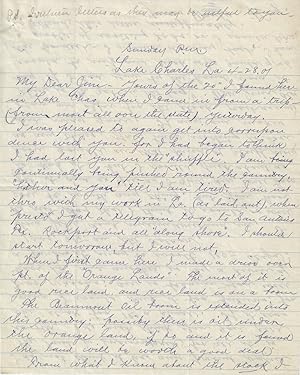 letters as this may be useful to you
Sunday Eve
Lake Charles La 4-28-01
My Dear Jim - Yours of the 20" I found here
in Lake Chas. when I came in from a trip
(from most all over the state) yesterday.
I was pleased to again get into correspon
dence with you for I had began to think
I had lost you in the "shuffle". I am being
continually being pushed around the country.
"hither and yon" till I am tired. I am not
thro with my work in La. (as laid out) when
presto I get a telegram to go to San Antonio
Rockport and all along shore". I should
start tomorrow but I will not.
When I first came here I made a drive over
pt. of the "Orange Lands". The most of it is
good rice land, and rice land is on a boom
The Beaumont Oil boom is extended into
this country. possibly there is oil under
the orange land. If so and it is found
the land will be worth a good deal
From what I know about the stock I